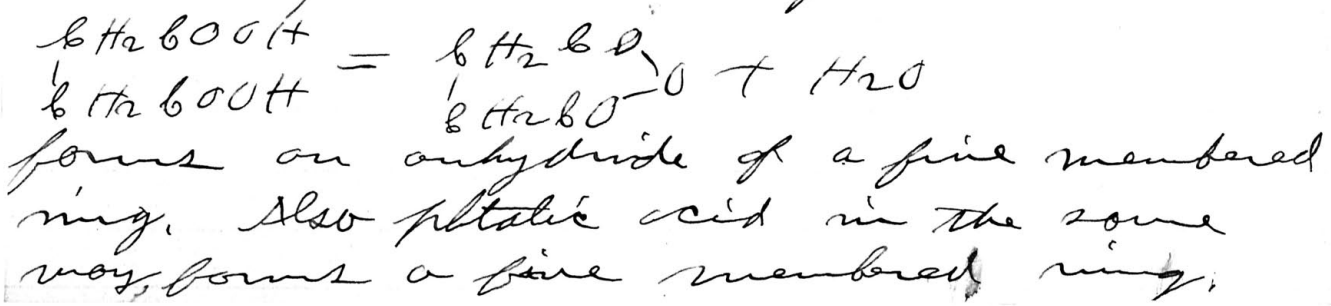 CH2COOH = CH2CO
| \O + H2O
CH2COOH CH2CO/
forms an anhydride of a five membered
ring. Also phtalic acid in the same
way, forms a five membered ring.